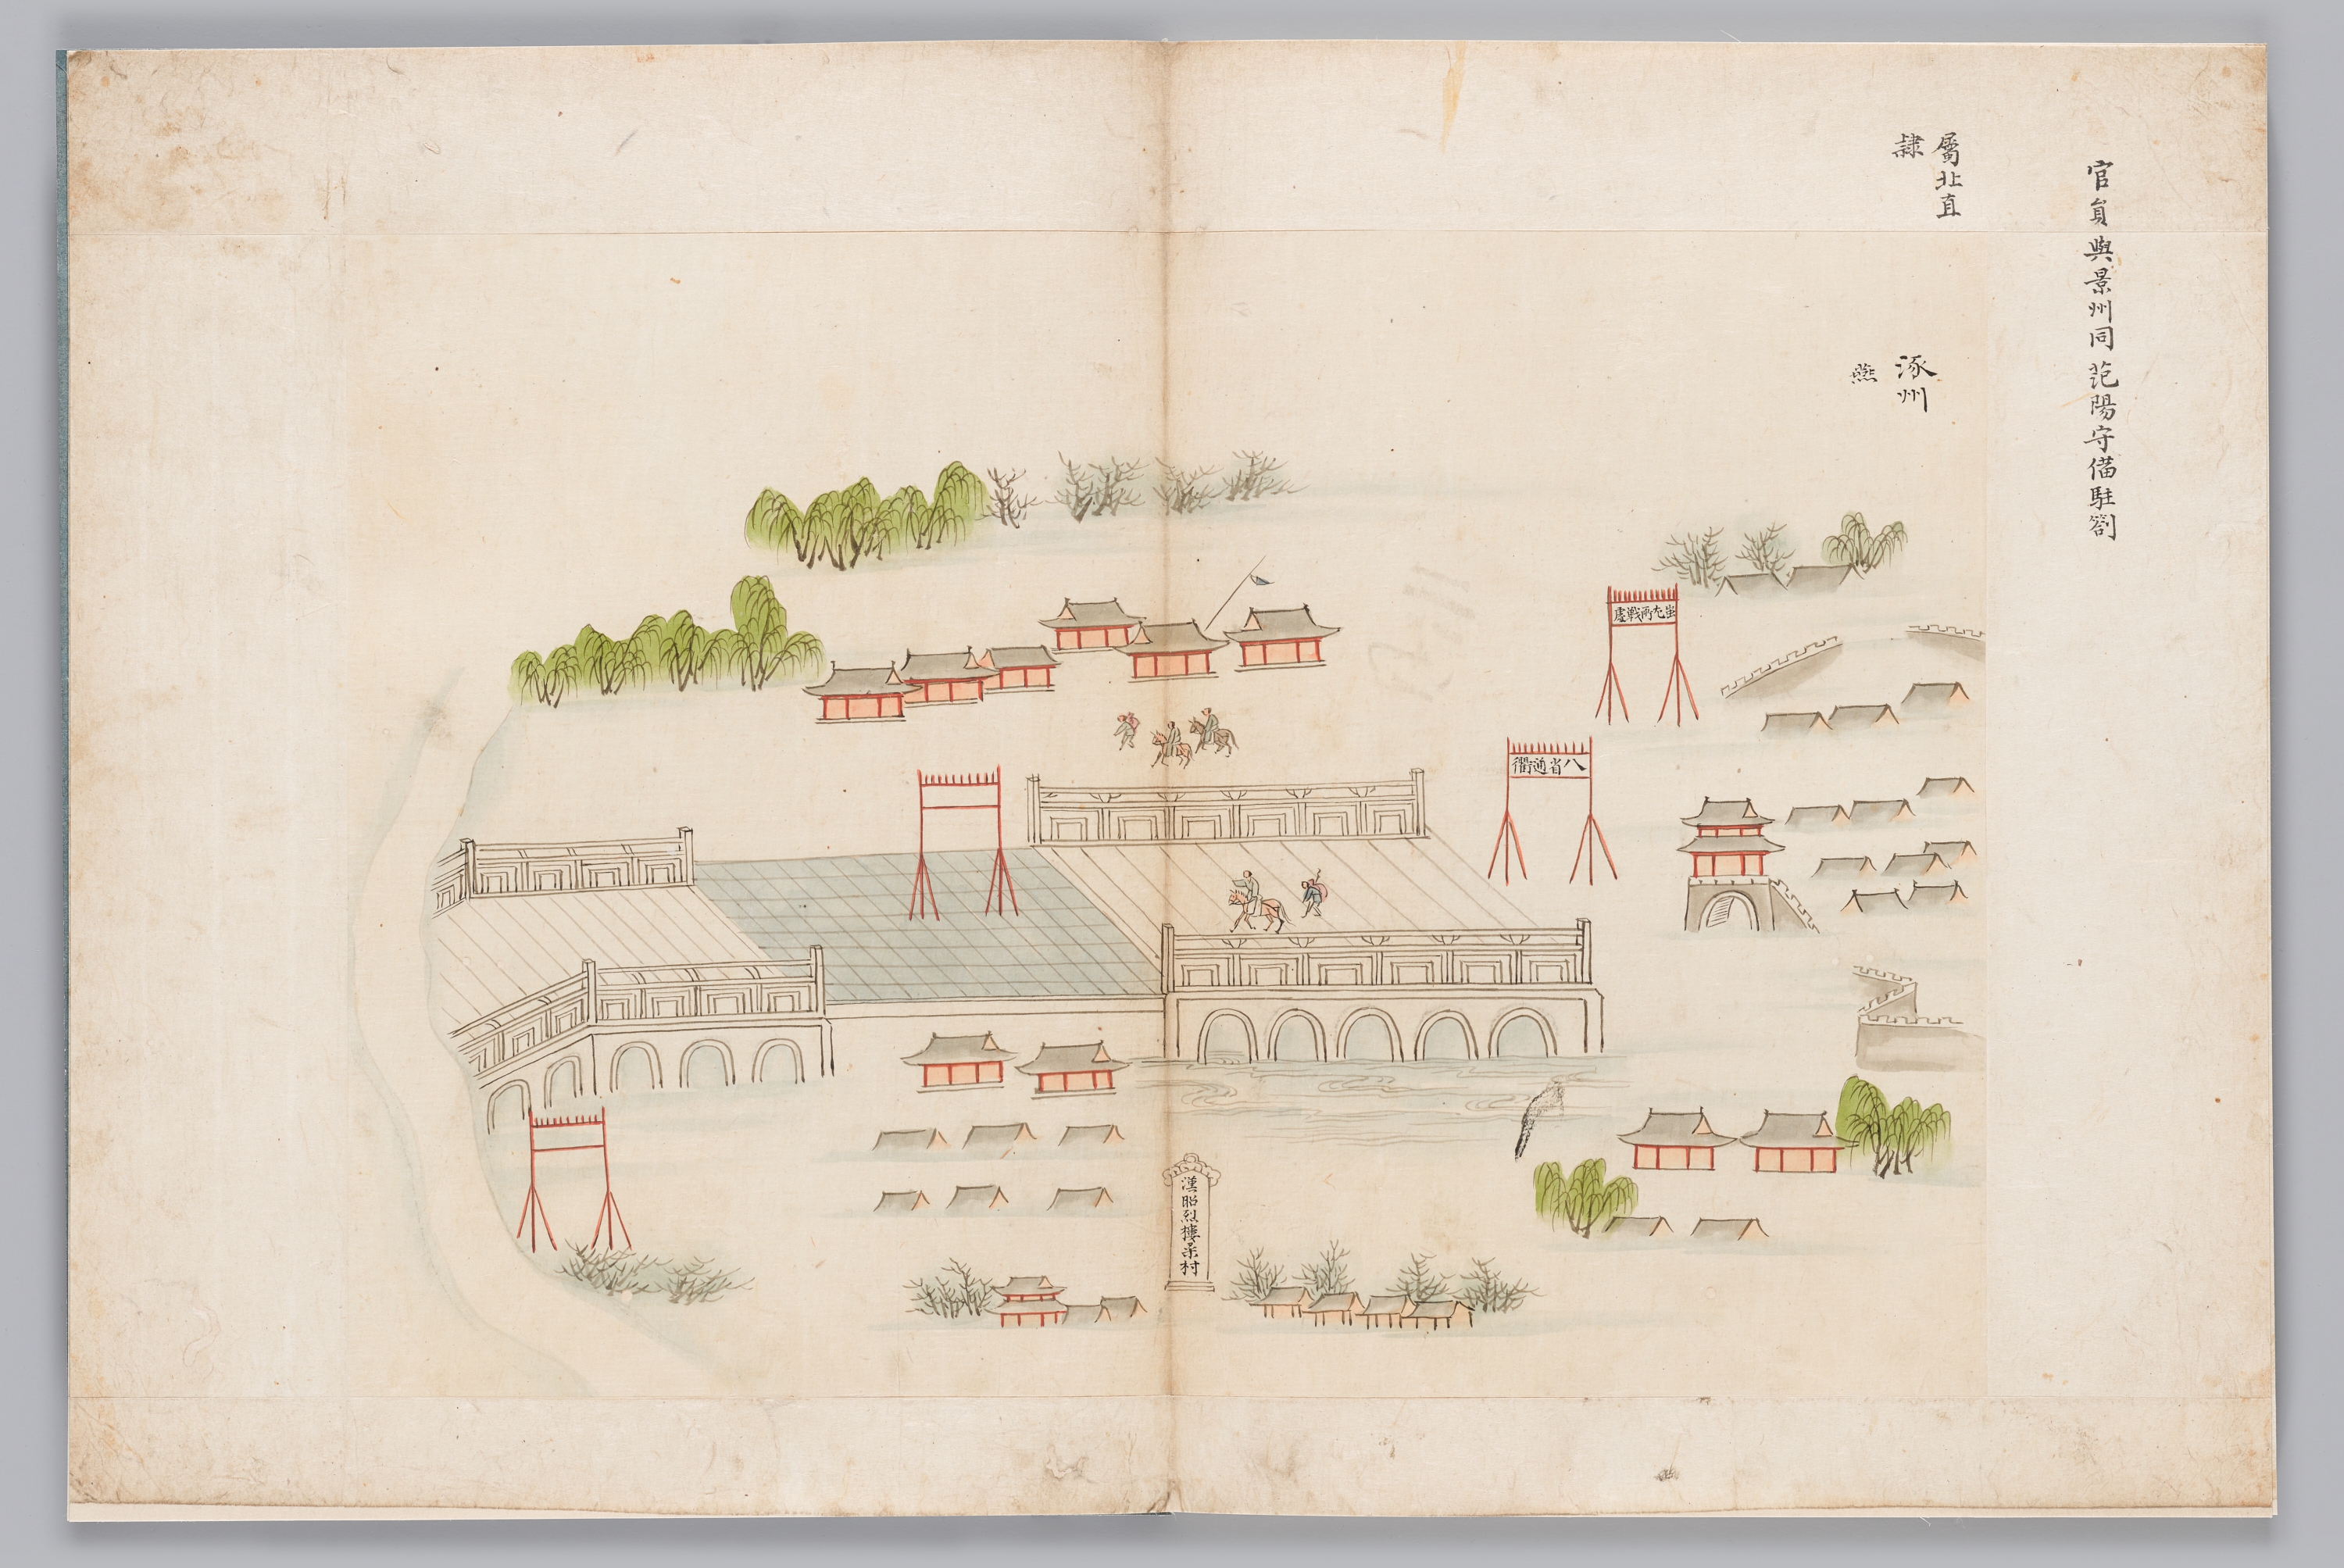 官員與景州同范陽守俻駐劄
屬北直
隷
涿州
燕
蚩尤戰處
八省通衢
漢昭烈樓桑村